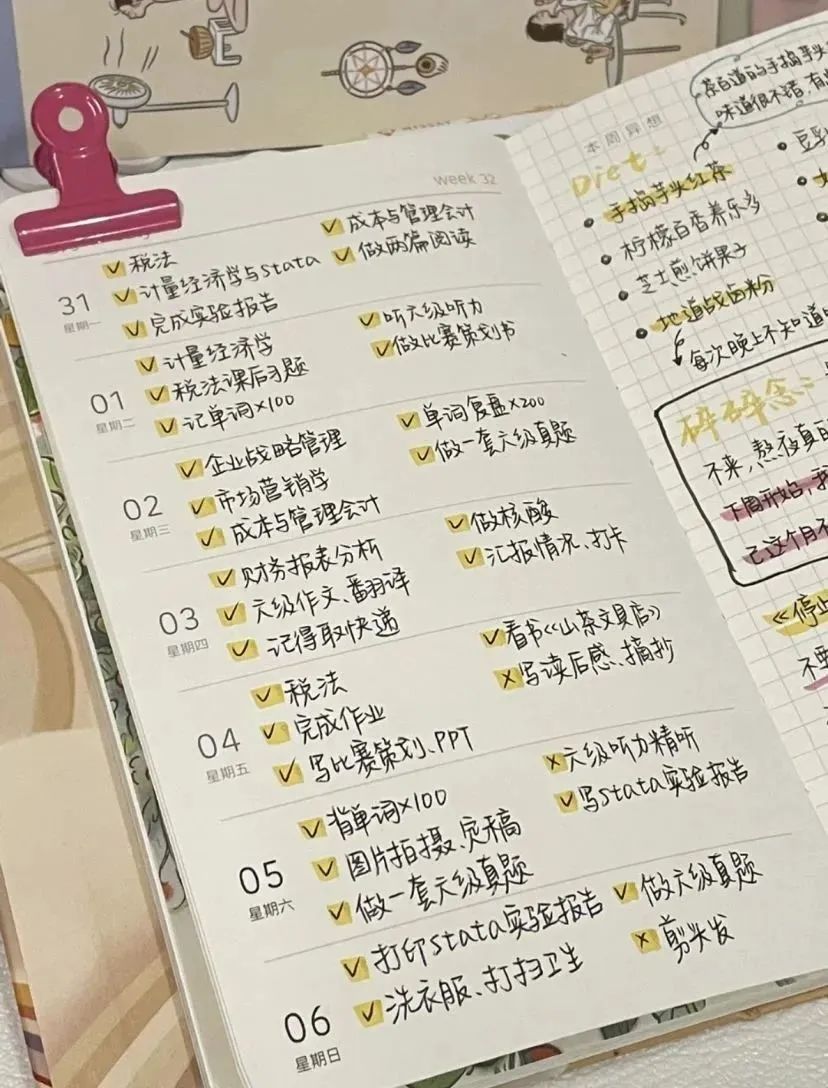 Week 32
31
星期一
✓ 税法
✓ 计量经济学与stata
✓ 完成实验报告
✓ 成本与管理会计
✓ 做两篇阅读
01
星期二
✓ 计量经济学
✓ 税法课后习题
✓ 记单词×100
✓ 听六级听力
✓ 做比赛策划书
02
星期三
✓ 企业战略管理
✓ 市场营销学
✓ 成本与管理会计
✓ 单词复盘×200
✓ 做一套六级真题
03
星期四
✓ 财务报表分析
✓ 六级作文、翻译
✓ 记得取快递
✓ 做核酸
✓ 汇报情况、打卡
04
星期五
✓ 税法
✓ 完成作业
✓ 写比赛策划、PPT
✓ 看书《山茶文具店》
× 写读后感、摘抄
05
星期六
✓ 背单词×100
✓ 图片拍摄、定稿
✓ 做一套六级真题
× 六级听力精听
✓ 写stata实验报告
06
星期日
✓ 打印stata实验报告
✓ 洗衣服、打扫卫生
✓ 做六级真题
× 剪头发
本周异想
Diet:
茶百道的手捣芋头
味道很不错,有
• 手捣芋头红茶
• 柠檬百香养乐多
• 芝士煎饼果子
• 地道战卤粉
每次晚上不知道
• 豆乳
碎碎念:
不来,熬夜真的
下周开始,我
己这个月不
《停止
不要